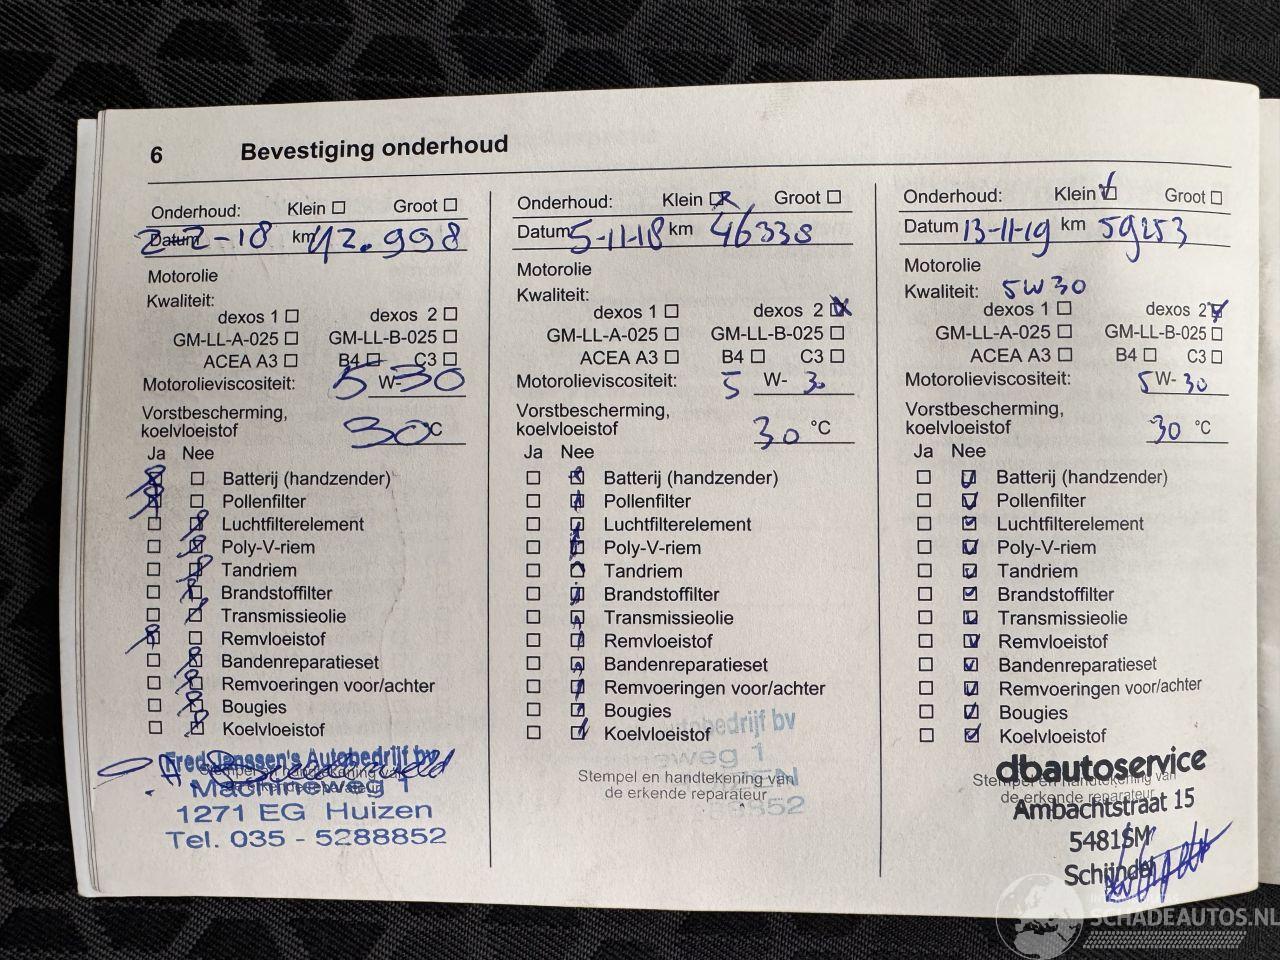 6 Bevestiging onderhoud
Onderhoud: Klein Groot
Datum 2-2-18 km 42.998
Motorolie
Kwaliteit:
dexos 1 dexos 2
GM-LL-A-025 GM-LL-B-025
ACEA A3 B4 C3
Motorolieviscositeit: 5 W- 30
Vorstbescherming,
koelvloeistof 30 °C
Ja Nee
Batterij (handzender)
Pollenfilter
Luchtfilterelement
Poly-V-riem
Tandriem
Brandstoffilter
Transmissieolie
Remvloeistof
Bandenreparatieset
Remvoeringen voor/achter
Bougies
Koelvloeistof
Fred Janssen's Autobedrijf bv
Machineweg 1
1271 EG Huizen
Tel. 035 - 5288852
Onderhoud: Klein Groot
Datum 5-11-18 km 46338
Motorolie
Kwaliteit:
dexos 1 dexos 2
GM-LL-A-025 GM-LL-B-025
ACEA A3 B4 C3
Motorolieviscositeit: 5 W- 30
Vorstbescherming,
koelvloeistof 30 °C
Ja Nee
Batterij (handzender)
Pollenfilter
Luchtfilterelement
Poly-V-riem
Tandriem
Brandstoffilter
Transmissieolie
Remvloeistof
Bandenreparatieset
Remvoeringen voor/achter
Bougies
Koelvloeistof
Stempel en handtekening van
de erkende reparateur
Onderhoud: Klein Groot
Datum 13-11-19 km 59253
Motorolie
Kwaliteit: 5W30
dexos 1 dexos 2
GM-LL-A-025 GM-LL-B-025
ACEA A3 B4 C3
Motorolieviscositeit: 5 W- 30
Vorstbescherming,
koelvloeistof 30 °C
Ja Nee
Batterij (handzender)
Pollenfilter
Luchtfilterelement
Poly-V-riem
Tandriem
Brandstoffilter
Transmissieolie
Remvloeistof
Bandenreparatieset
Remvoeringen voor/achter
Bougies
Koelvloeistof
dbautoservice
Stempel en handtekening van
de erkende reparateur
Ambachtstraat 15
5481SM
Schijndel
SCHADEAUTOS.NL